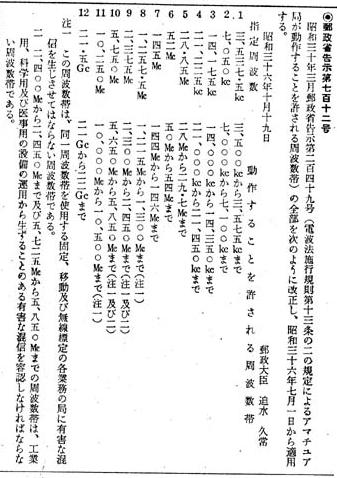 ◉郵政省告示第七百十二号
昭和三十年三月郵政省告示第二百四十九号(電波法施行規則第十三条の二の規定によるアマチュア
局が動作することを許される周波数帯)の全部を次のように改正し、昭和三十六年七月一日から適用
する。
昭和三十六年十月十九日
郵政大臣 迫水 久常
指定周波数 動作することを許される周波数帯
1 三、五三七・五kc 三、五〇〇kcから三、五七五kcまで
2 七、〇五〇kc 七、〇〇〇kcから七、一〇〇kcまで
3 一四、一七五kc 一四、〇〇〇kcから一四、三五〇kcまで
4 二一、二二五kc 二一、〇〇〇kcから二一、四五〇kcまで
5 二八・八五Mc 二八Mcから二九・七Mcまで
6 五二Mc 五〇Mcから五四Mcまで
7 一四五Mc 一四四Mcから一四六Mcまで
8 一、二五七・五Mc 一、二一五Mcから一、三〇〇Mcまで(注一)
9 二、三七五Mc 二、三〇〇Mcから二、四五〇Mcまで(注一及び二)
10 五、七五〇Mc 五、六五〇Mcから五、八五〇Mcまで(注一及び二)
11 一〇、二五〇Mc 一〇、〇〇〇Mcから一〇、五〇〇Mcまで(注一)
12 二一・五Gc 二一Gcから二二Gcまで
注一 この周波数帯は、同一周波数帯を使用する固定、移動及び無線標定の各業務の局に有害な混
信を生じさせてはならない周波数帯である。
二 二、四〇〇Mcから二、四五〇Mcまで及び五、七二五Mcから五、八五〇Mcまでの周波数帯は、工業
用、科学用及び医事用の設備の運用から生ずることのある有害な混信を容認しなければならな
い周波数帯である。